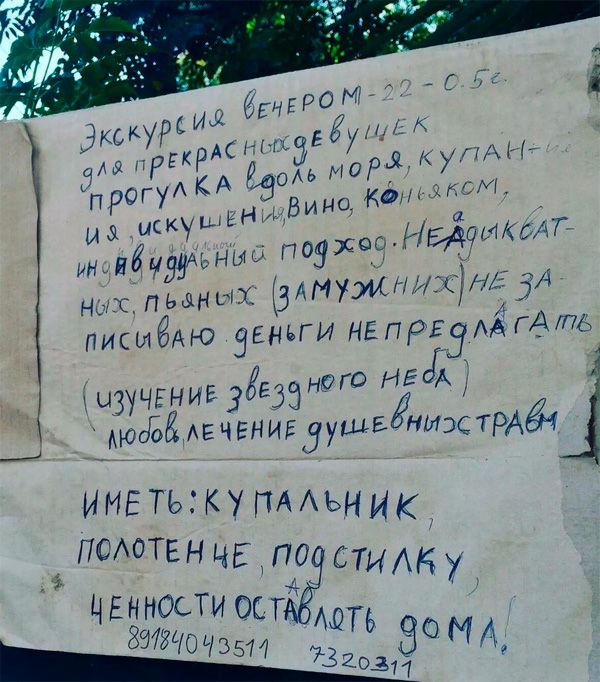 Экскурсия вечером - 22 - 0.5г.
для прекрасных девушек
прогулка вдоль моря, купан-
ия, искушения, вино, коньяком,
индивидуальный подход. Неадыкват-
ных, пьяных (замужних) не за-
писываю деньги непредлагать
(изучение звездного неба)
любовь, лечение душевных травм
иметь: купальник,
полотенце, подстилку,
ценности оставлять дома!
89184043511 7320311